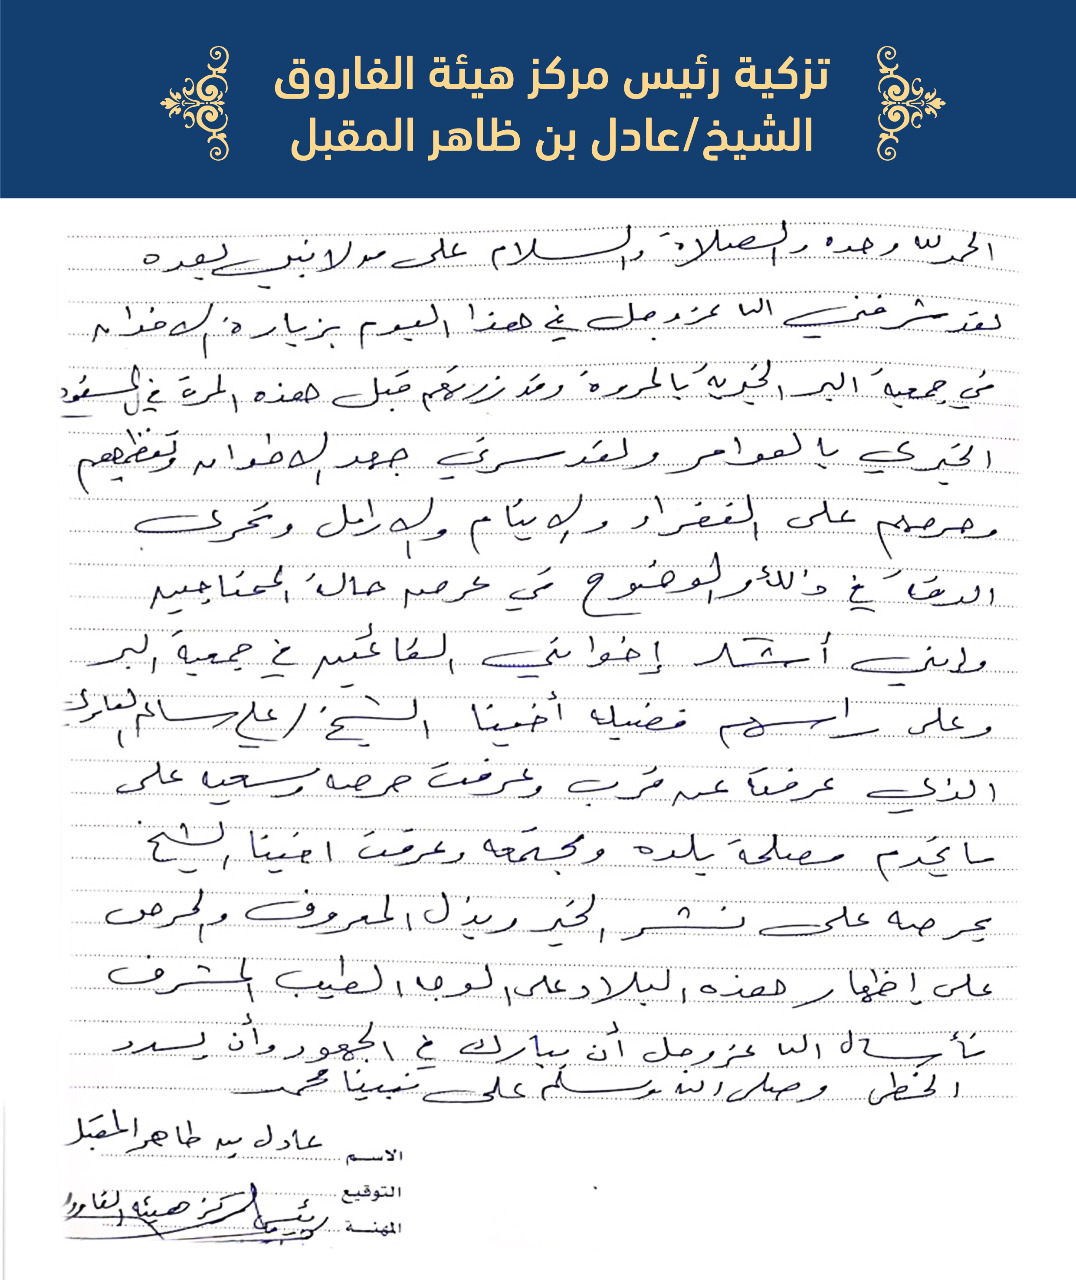 تزكية رئيس مركز هيئة الفاروق
الشيخ/عادل بن ظاهر المقبل
الحمد لله وحده والصلاة والسلام على من لا نبي بعده
لقد شرفني الله عز وجل في هذا اليوم بزيارة الاخوان
في جمعية البر الخيرية بالمروة وقد زرتهم قبل هذه المرة في المستودع
الخيري بالعوامر ولقد سرني جهد الاخوان وتنظيمهم
وحرصهم على الفقراء والايتام والارامل وتحري
الدقة في ذلك والوضوح في عرض حالة المحتاجين
وإنني أشكر إخواني القائمين في جمعية البر
وعلى راسهم فضيلة أخينا الشيخ / علي سالم العامري
الذي عرفته عن قرب وعرفت حرصه وسعيه على
ما يخدم مصلحة بلده ومجتمعه وعرفت اخينا الشيخ
بحرصه على نشر الخير وبذل المعروف والحرص
على إظهار هذه البلاد على الوجه الطيب المشرف
نأسال الله عز وجل أن يبارك في الجهود وأن يسدد
الخطى وصلى الله وسلم على نبينا محمد
الاسم عادل بن ظاهر المقبل
التوقيع
المهنة رئيس مركز هيئة الفاروق